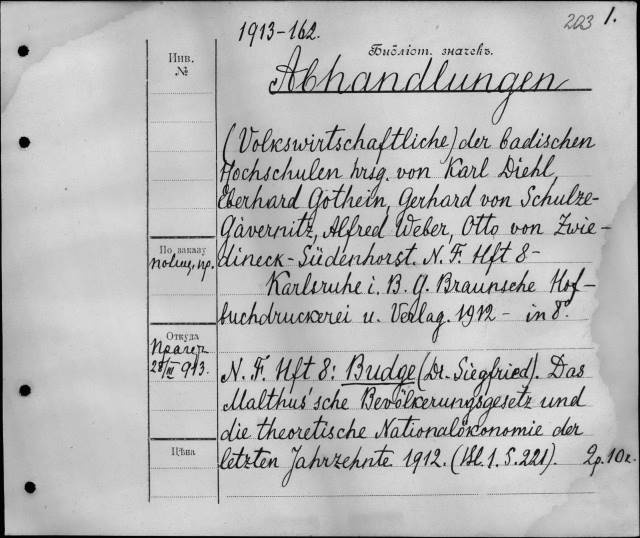 203 1.
1913-162.
Библіот. значекъ.
Инв.
№
Abhandlungen
(Volkswirtschaftliche) der badischen
Hochschulen hrsg. von Karl Diehl,
Eberhard Gothein, Gerhard von Schulze-
Gävernitz, Alfred Weber, Otto von Zwie-
По заказу
dineck-Südenhorst. N. F. Hft 8-
Karlsruhe i. B. G. Braunsche Hof-
buchdruckerei u. Verlag. 1912- in 8°.
Откуда
28/III 913.
N. F. Hft 8: Budge (Dr. Siegfried). Das
Malthus'sche Bevölkerungsgesetz und
die theoretische Nationalökonomie der
Цѣна
letzten Jahrzehnte 1912. (Bl. 1. S. 221). 2р. 10к.